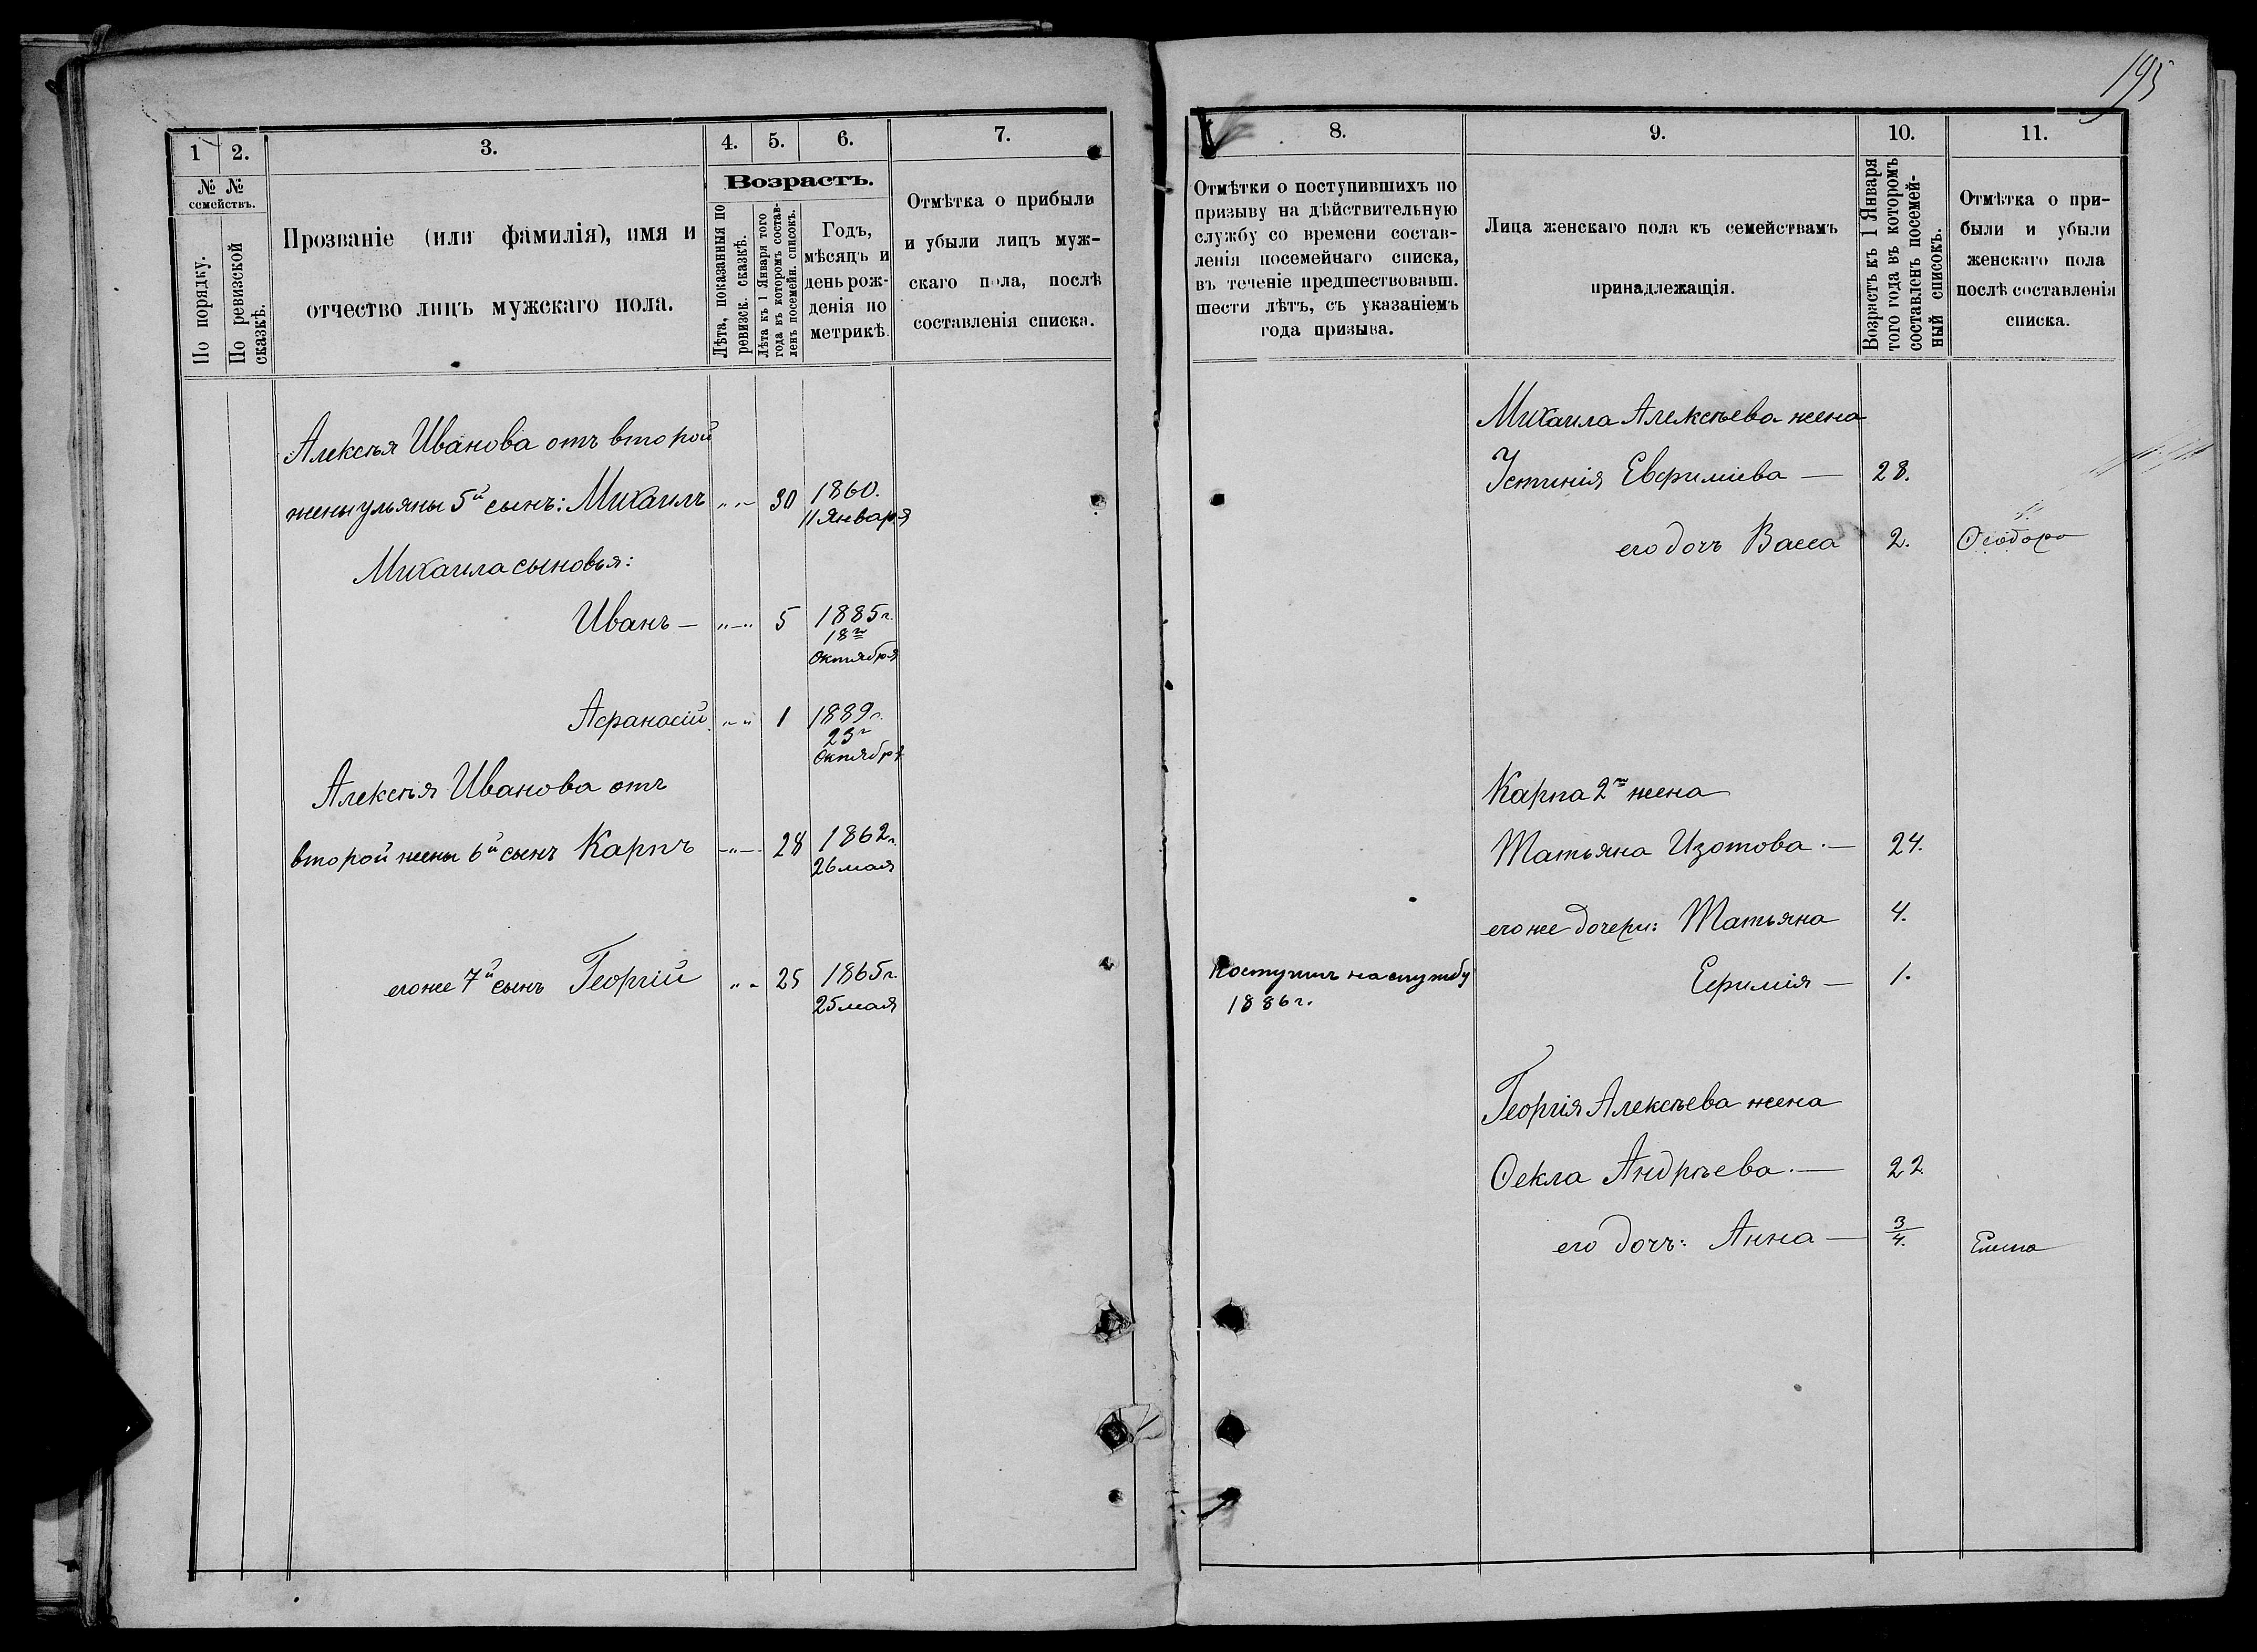 195
1
2.
3.
4.
5.
6.
7.
№ №
семействъ.
По порядку.
По ревизской
сказкѣ.
Прозваніе (или фамилія), имя и
отчество лицъ мужскаго пола.
Возрастъ.
Лѣта, показанныя по
ревизск. сказкѣ.
Лѣта къ 1 Января того
года въ которомъ состав-
ленъ посемейн. списокъ.
Годъ,
мѣсяцъ и
день рож-
денія по
метрикѣ.
Отмѣтка о прибыли
и убыли лицъ муж-
скаго пола, послѣ
составленія списка.
Алексѣя Иванова отъ второй
жены ульяны 5й сынъ: Михаилъ „ — 30 1860.
11 Января
Михаила сыновья:
Иванъ — „—„ 5 1885г.
18го
Октября
Афанасій „-„ 1 1889г.
23г
Октября
Алексѣя Иванова отъ
второй жены 6й сынъ Карпъ —„— 28 1862г.
26 мая
его же 7й сынъ Георгій „ „ 25 1865г.
25 мая
8.
9.
10.
11.
Отмѣтки о поступившихъ по
призыву на дѣйствительную
службу со времени состав-
ленія посемейнаго списка,
въ теченіе предшествовавш.
шести лѣтъ, съ указаніемъ
года призыва.
Лица женскаго пола къ семействамъ
принадлежащія.
Возрастъ къ 1 Января
того года въ которомъ
составленъ посемей-
ный списокъ.
Отмѣтка о при-
были и убыли
женскаго пола
послѣ составленія
списка.
Михаила Алексѣева жена
Устинія Евфиміева — 28.
его дочь Васса 2. Ѳеодора
Карпа 2я жена
Татьяна Изотова. — 24.
его же дочери: Татьяна 4.
Поступилъ на службу
1886г.
Ефимія — 1.
Георгія Алексѣева жена
Ѳекла Андрѣева. — 22
его дочь: Анна — 3/4. Елена